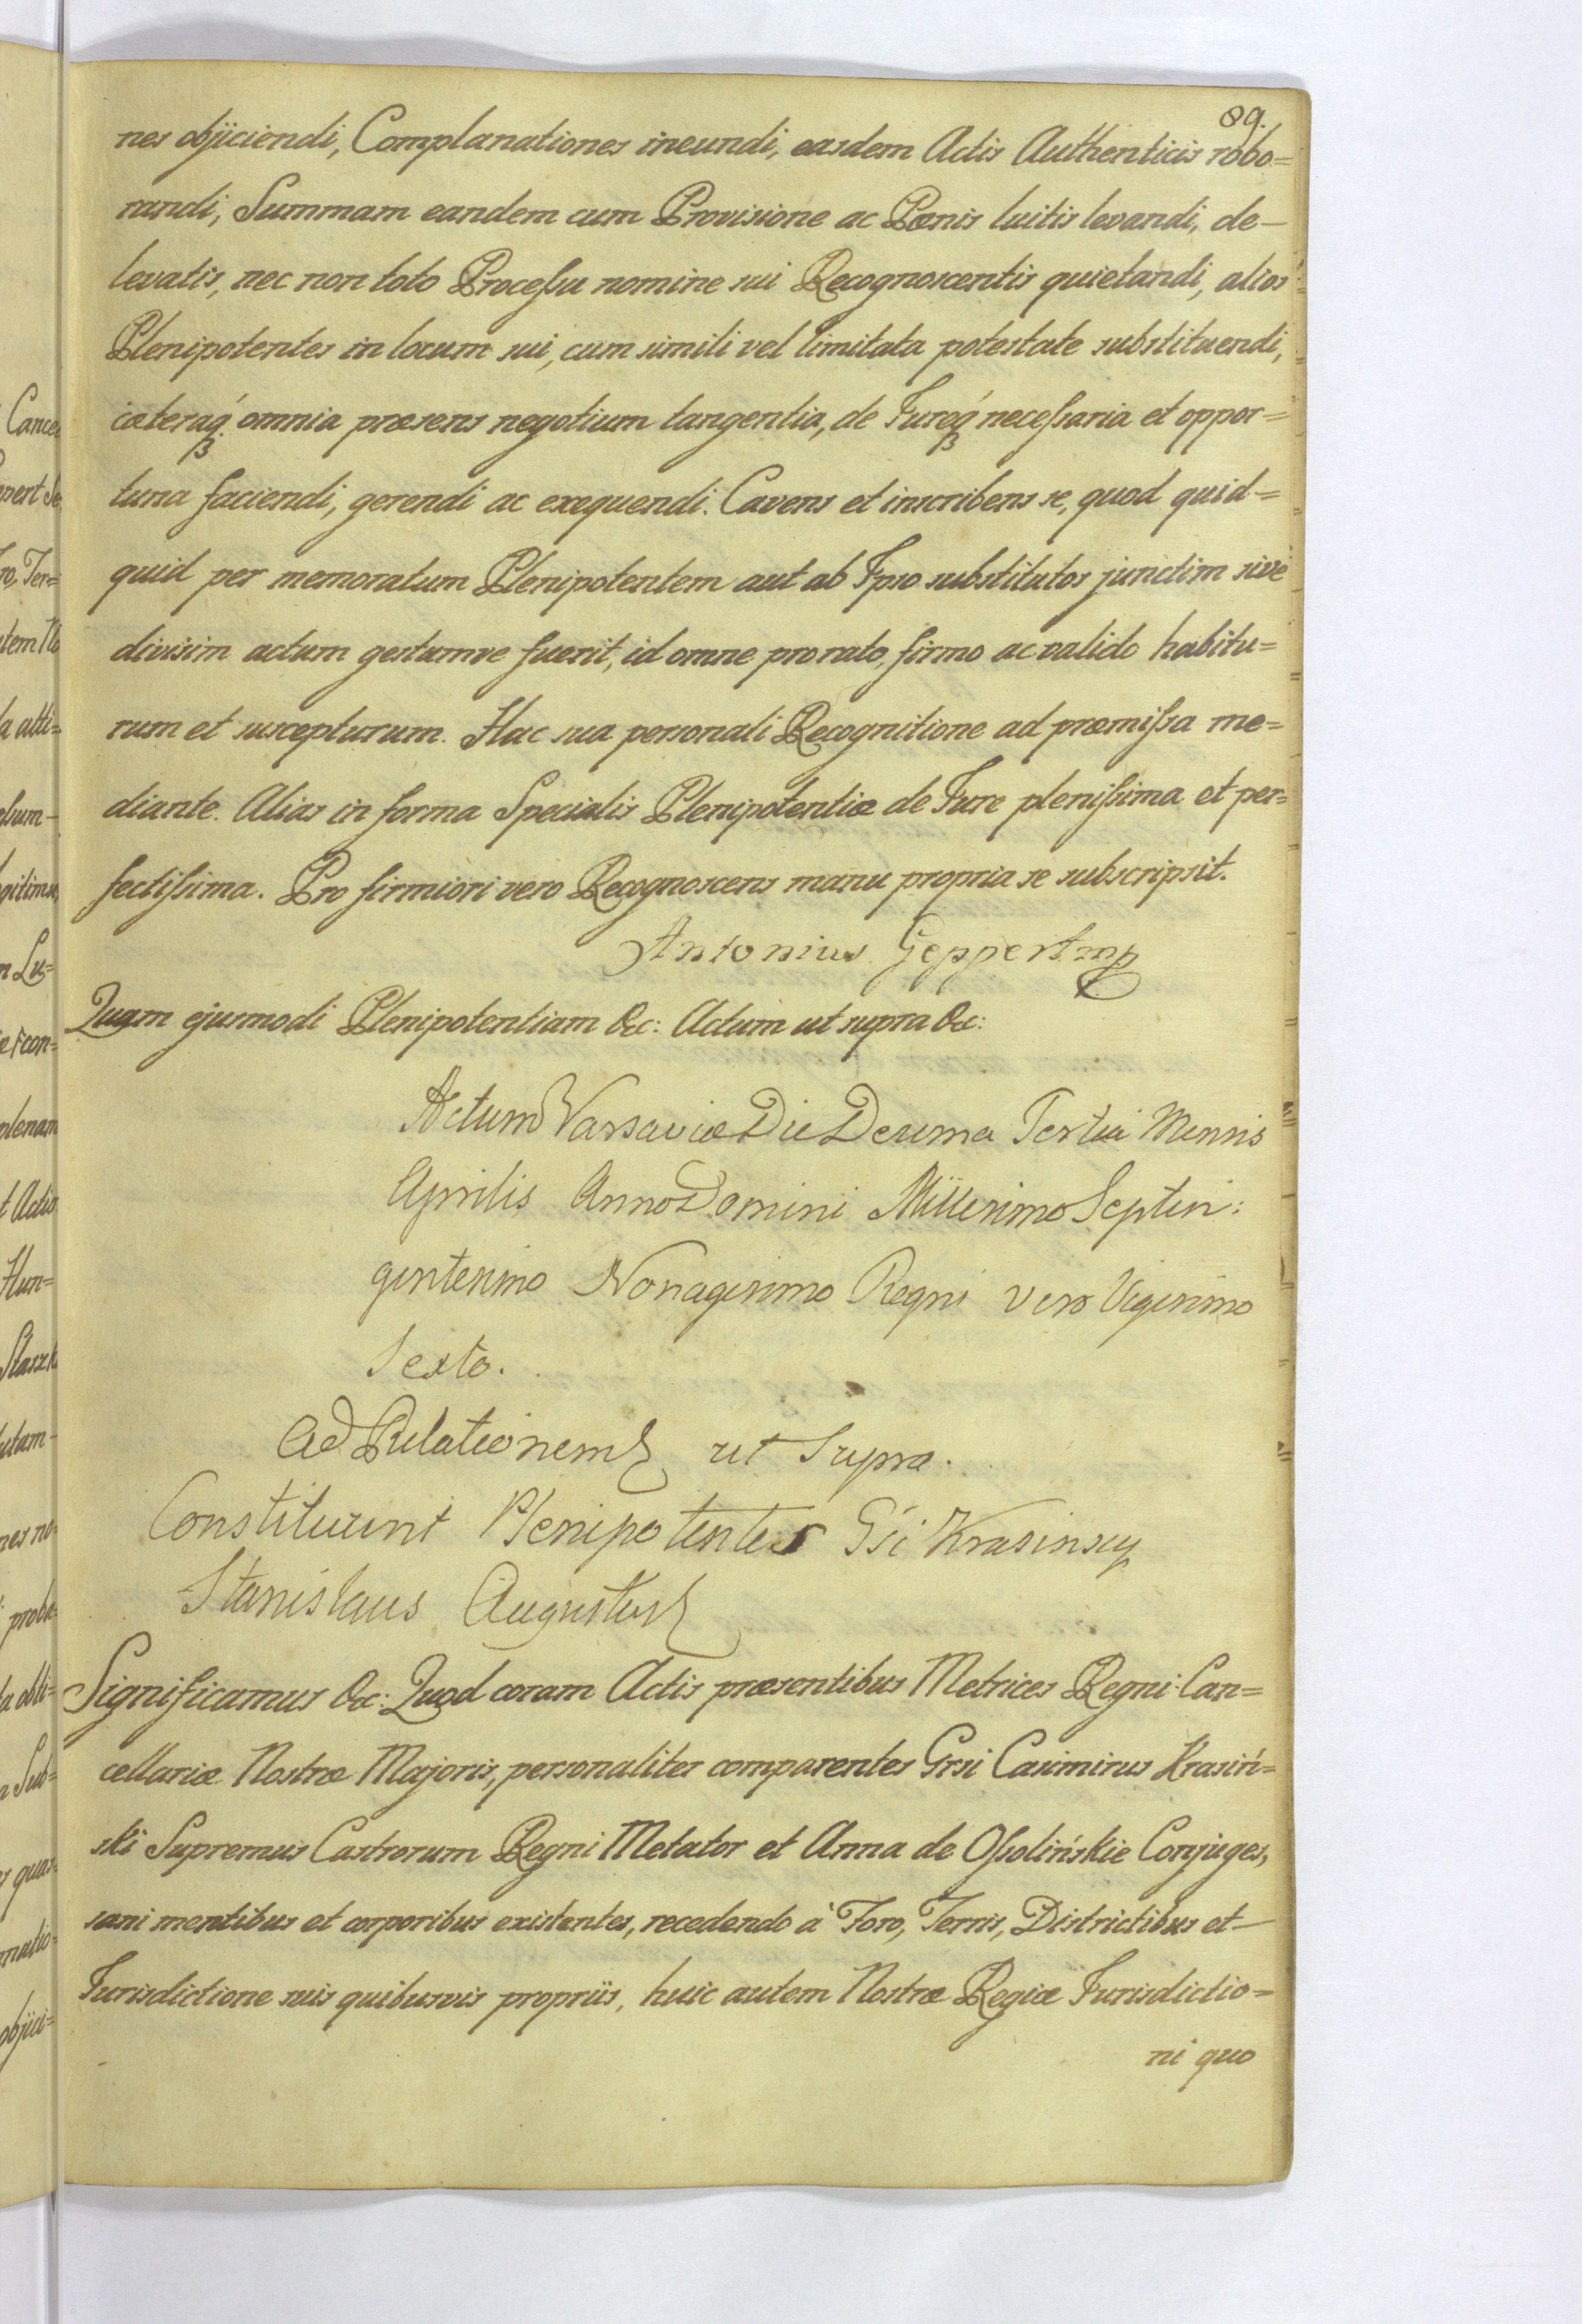 89.
nes objiciendi, Complanationes ineundi, easdem Actis Authenticis robo=
randi, Summam eandem cum Provisione ac Pœnis luitis levandi, de—
levatis, nec non toto Proceſsu nomine sui Recognoscentis quietandi, alios
Plenipotentes in locum sui, cum simili vel limitata potestate substituendi,
cæteraq́ꝫ omnia præsens negotium tangentia, de Jureq́ꝫ neceſsaria et oppor=
tuna faciendi, gerendi ac exequendi. Cavens et inscribens se, quod quid=
quid per memoratum Plenipotentem aut ab Ipso substitutos junctim sive
divisim actum gestumve fuerit, id omne pro rato, firmo ac valido habitu=
rum et suscepturum. Hac sua personali Recognitione ad præmiſsa me=
diante. Alias in forma Specialis Plenipotentiæ de Jure pleniſsima et per=
fectiſsima. Pro firmiori vero Recognoscens manu propria se subscripsit.
Antonius Geppert mp
Quam ejusmodi Plenipotentiam &c: Actum ut supra &c:
Actum Varsaviæ Die Decima Tertia Mensis
Aprilis Anno Domini Millesimo Septin:
gentesimo Nonagesimo Regni vero Vigesimo
Sexto.
Ad Relationem ut Supra.
Constituunt Plenipotentes Gsi Krasinscy
Stanislaus Augustus
Significamus &c: Quod coram Actis præsentibus Metrices Regni Can=
cellariæ Nostræ Majoris, personaliter comparentes Grsi Casimirus Krasiń=
ski Supremus Castrorum Regni Metator et Anna de Oſsolińskie Conjuges,
sani mentibus et corporibus existentes, recedendo à Foro, Terris, Districtibus et—
Jurisdictione suis quibusvis propriis, huic autem Nostræ Regiæ Jurisdictio=
ni quo